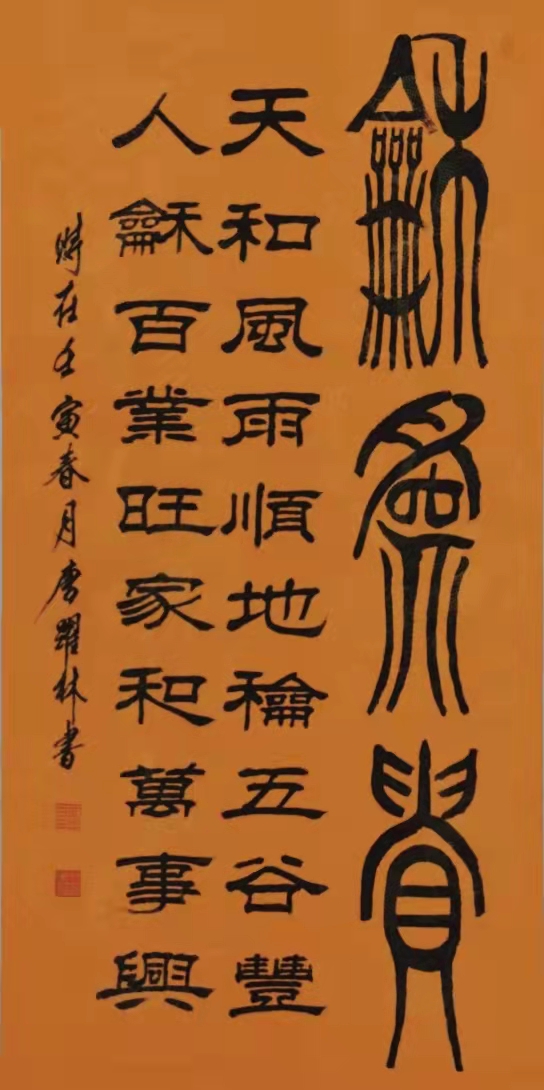 龢爲貴
天和風雨順地龢五谷豐
人龢百業旺家和萬事興
時在壬寅春月唐耀林書